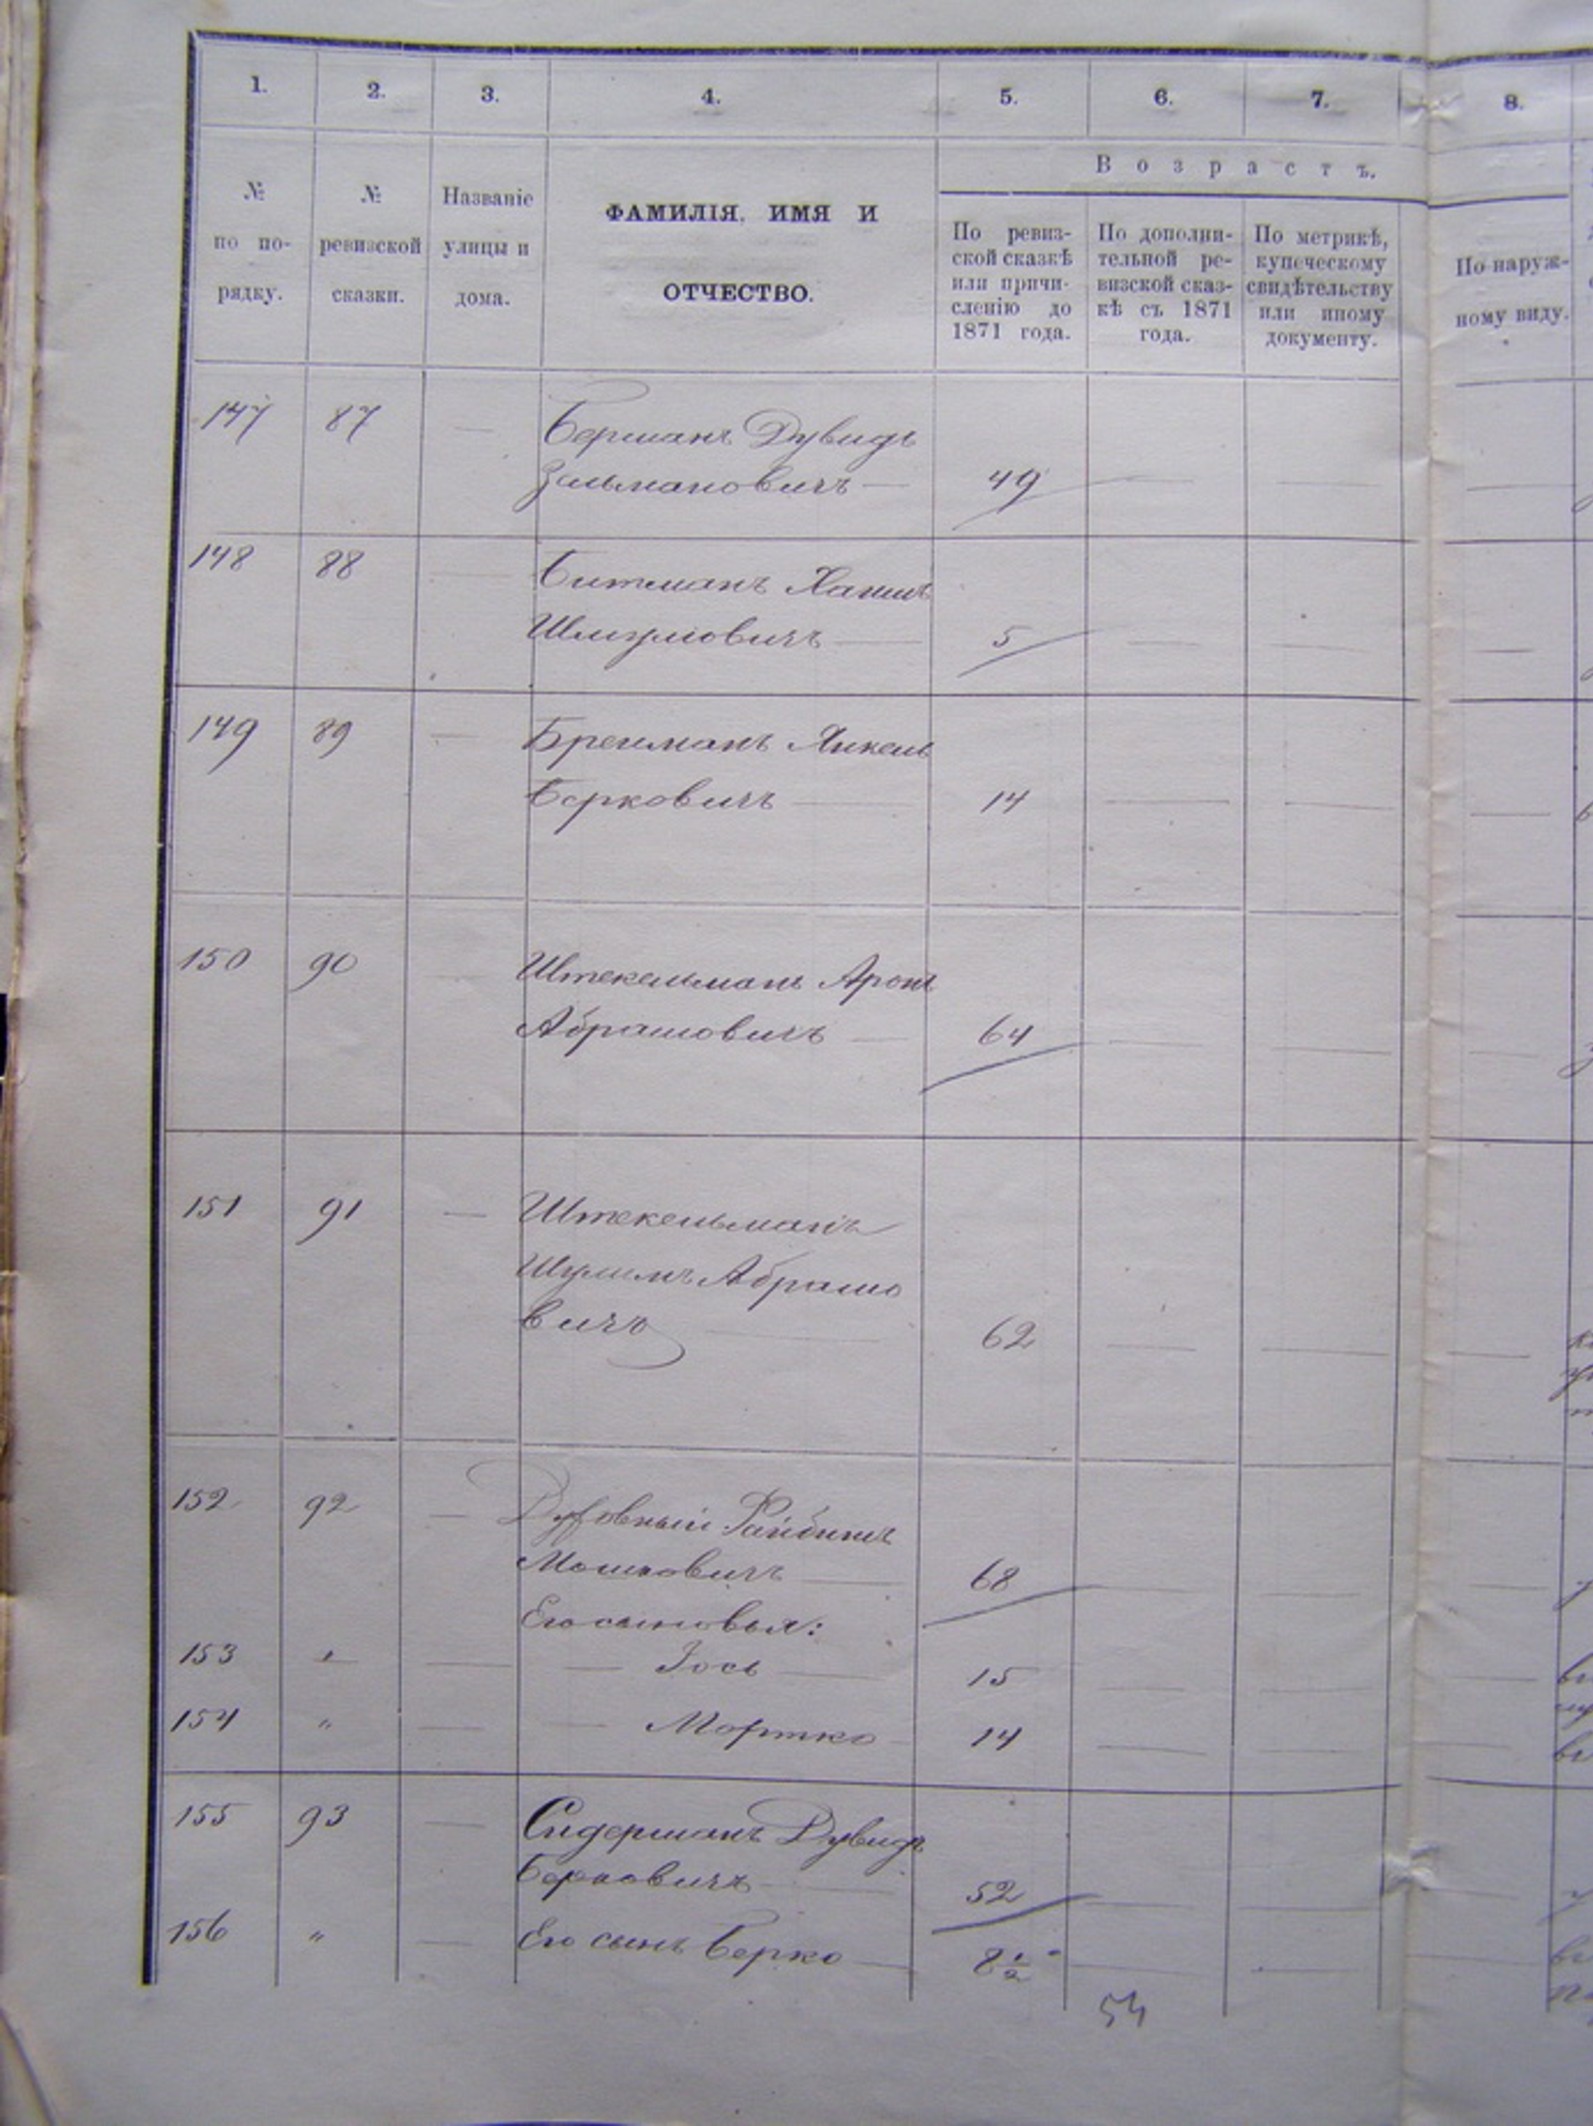 1. 2. 3. 4. 5. 6. 7. 8.
В о з р а с т ъ.
№ по по- рядку.
№ ревизской сказки.
Названіе улицы и дома.
ФАМИЛІЯ, ИМЯ И
ОТЧЕСТВО.
По ревиз-
ской сказкѣ
или причи-
сленію до
1871 года.
По дополни-
тельной ре-
визской сказ-
кѣ съ 1871
года.
По метрикѣ,
купеческому
свидѣтельству
или иному
документу.
По наруж-
ному виду.
147 87 — Берманъ Дувидъ
Зельмановичъ — 49 — —
148 88 — Битманъ Хаимъ
Шмулювичъ — 5 — — —
149 89 — Бренманъ Янкель
Берковичъ — 14 — — —
150 90 — Штекельманъ Аронъ
Абрамовичъ — 64 — — —
151 91 — Штекельманъ
Шулимъ Абрамо
вичъ — 62 — — —
152 92 — Духовный
Мошковичъ — 68 — — —
Его сыновья:
153 " — — Іось — 15 — — —
154 " — — Мортко — 14 — — —
155 93 — Сидерманъ Дувидъ
Берковичъ — 52 — — —
156 " — Его сынъ Берко — 8 1/2 — —
54